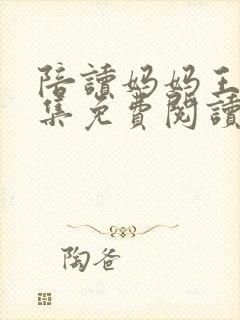 陪讀妈妈王
集免費閱讀
陶爸